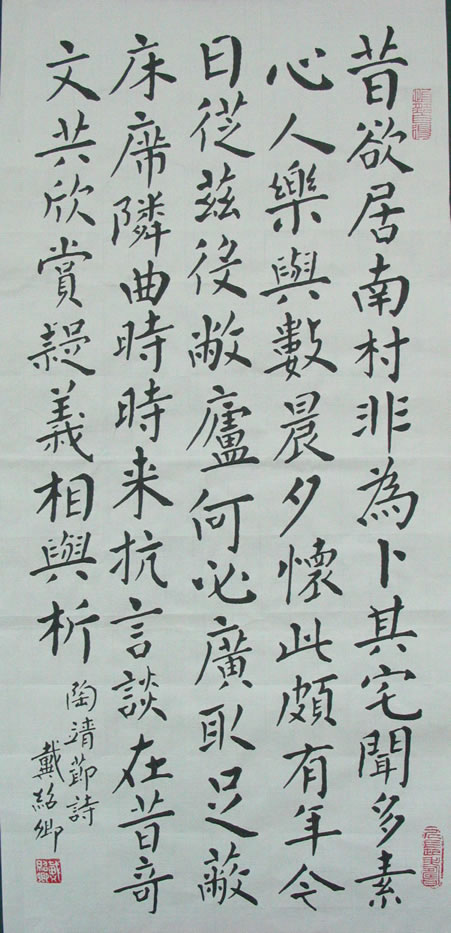 昔欲居南村非為卜其宅聞多素
心人樂與數晨夕懷此頗有年今
日從茲役敝廬何必廣取足蔽
床席隣曲時時来抗言談在昔奇
文共欣賞疑義相與析
陶靖節詩
戴紹卿